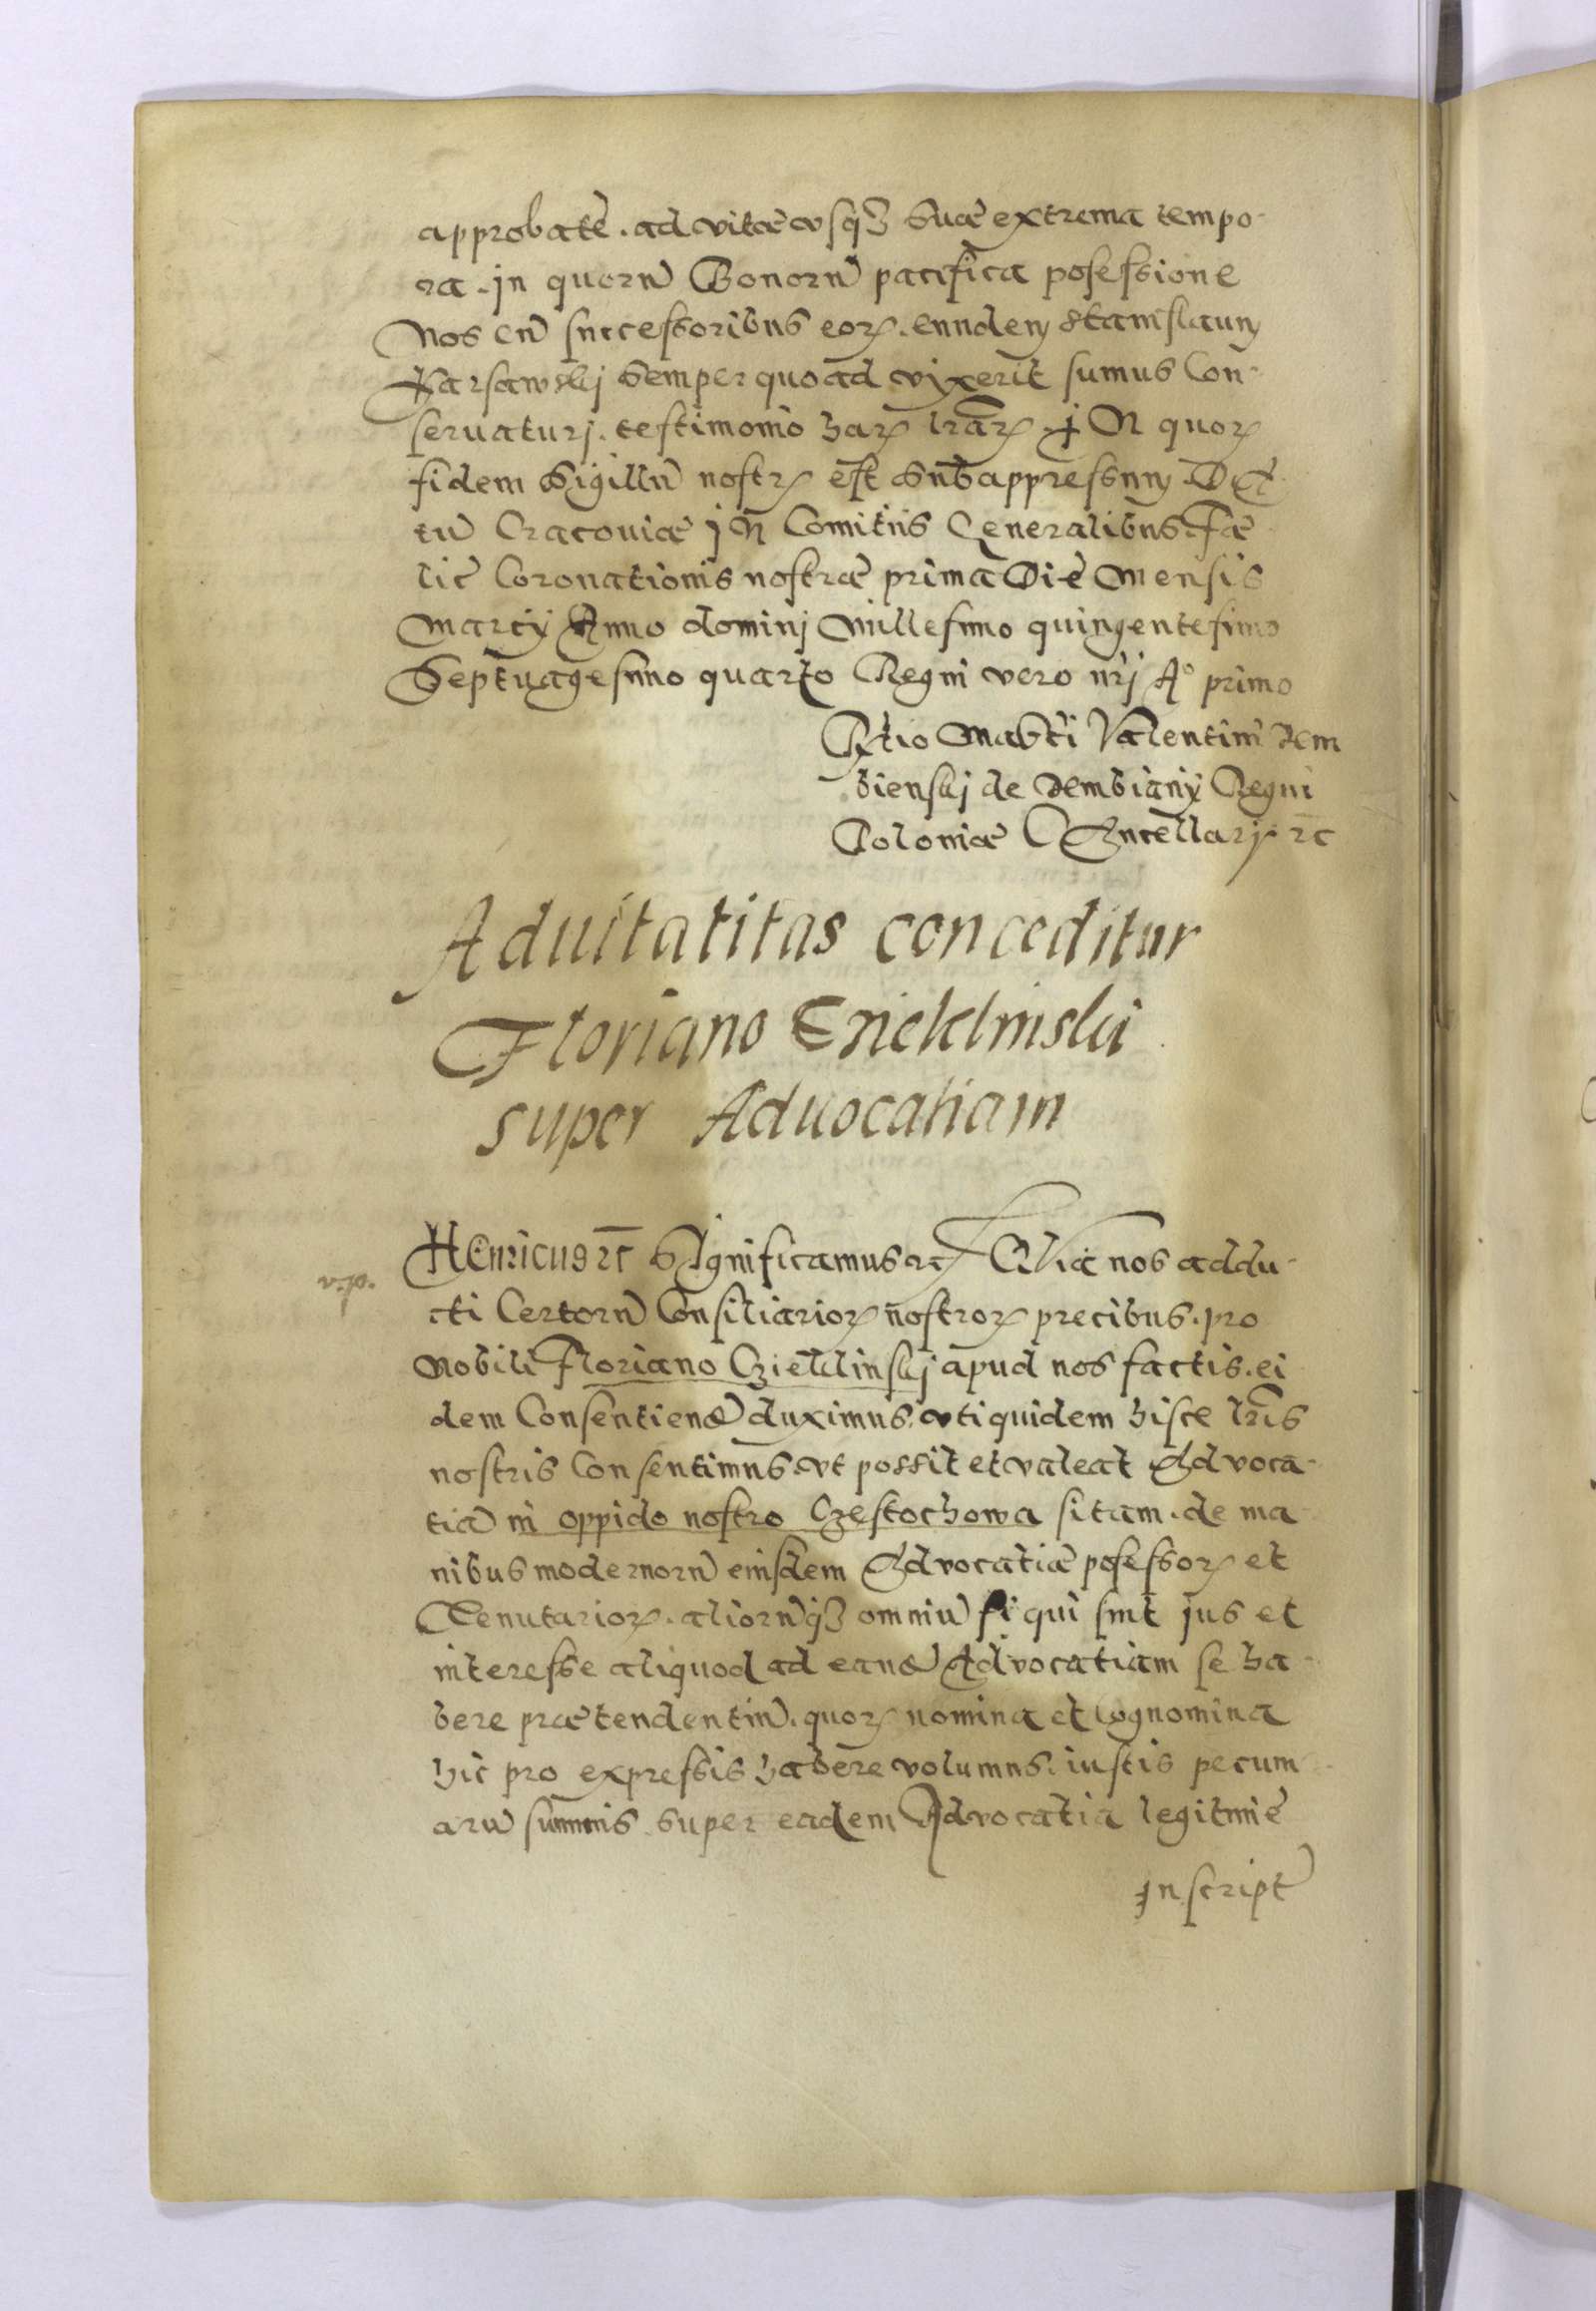 approbatè. ad vitæ vsq3 suæ extrema tempo-
ra. jn quorū Bonorū pacifica posessione
Nos cū successoribus eorꝝ. eundem Stanislaum
Karsawskj semper quoad vixerit sumus Con-
seruaturj. testimonio harꝝ lrārꝝ. jN quorꝝ
fidem Sigillū nostrꝝ est subappressum. DA
tū Cracouiæ jN Comitiis Generalibus Fæ
lic Coronationis nostræ prima Die Mensis
Marcij Anno dominj Millesimo quingentesimo
Septuagesimo quarto Regni vero nrj A° primo
Rtio Mahci Valentini Dem
bienskj de Dembiany Regni
Poloniæ CAncellarj ꝛc
Aduitatitas conceditur
Floriano Czieklinski
super Aduocatiam
HEnricus ꝛc SIgnificamus ꝛc Quia nos addu-
cti Certorū Consiliariorꝝ nostrorꝝ precibus. pro
Nobili Floriano Czieklinskj apud nos factis. ei
dem Consentiend duximus. vti quidem hisce lrīs
nostris Consentimus. vt possit et valeat Advoca-
tiā in oppido nostro Czestochowa sitam. de ma-
nibus modernorū eiusdem Advocatiæ posessorꝝ et
Tenutariorꝝ. aliorūq3 omniū si qui sint jus et
interesse aliquod ad eand Advocatiam se ha-
bere prætendentiū. quorꝝ nomina et Cognomina
hic pro expressis habere volumus. iustis pecuni-
arū summis super eadem Advocatia legitimè
jnscript